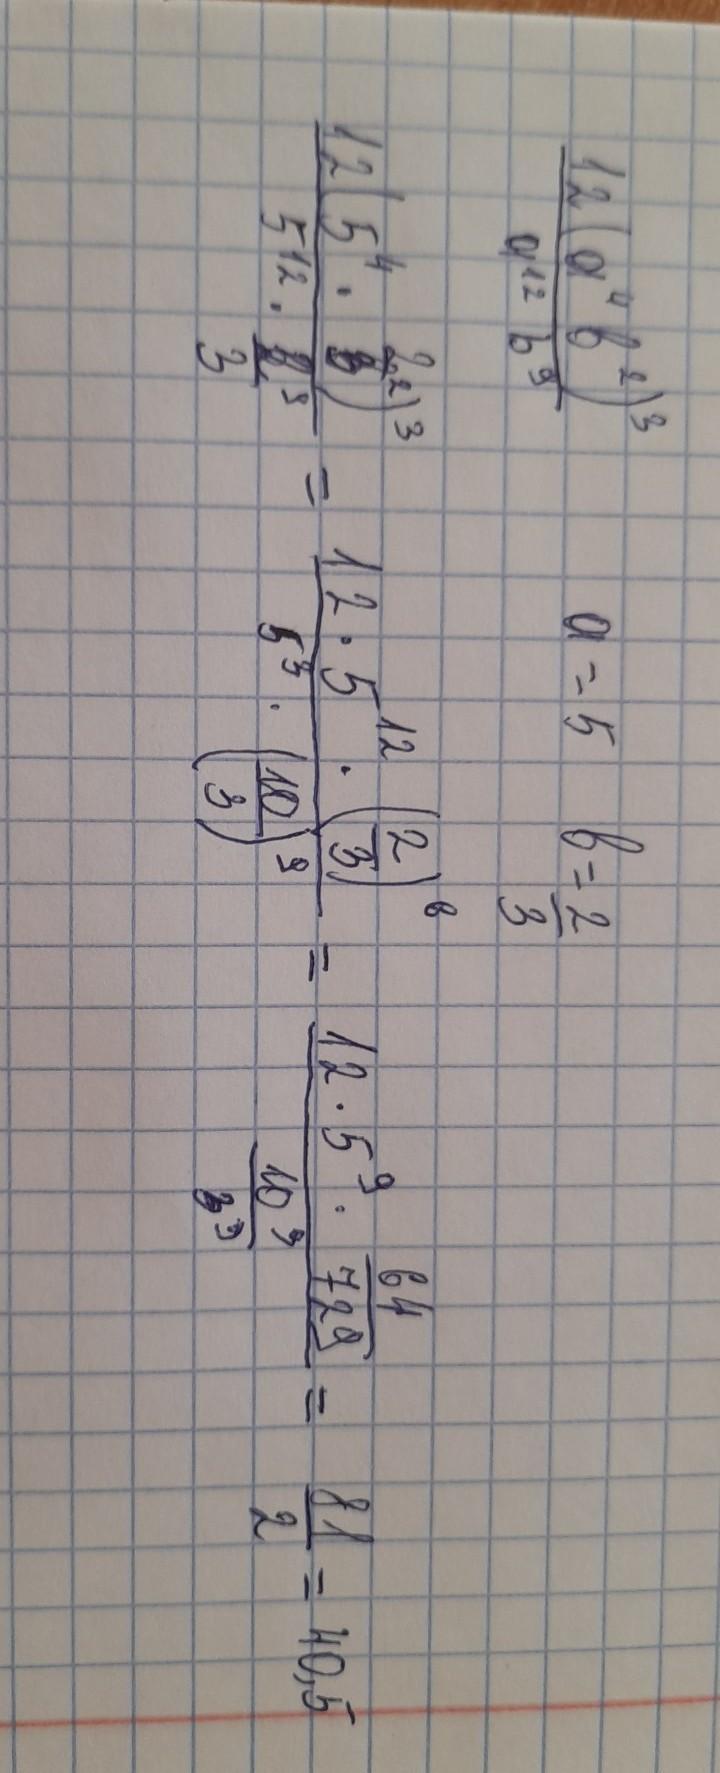 12(a⁴b²)³ / a¹²b⁹   a = 5   b = 2/3
12(5⁴ · 2/3²)³ / 5¹² · 2/3⁹ = 12 · 5¹² · (2/3)⁶ / 5³ · (10/3)⁹ = 12 · 5⁹ · 64/729 / 10⁹/3⁹ = 81/2 = 40,5